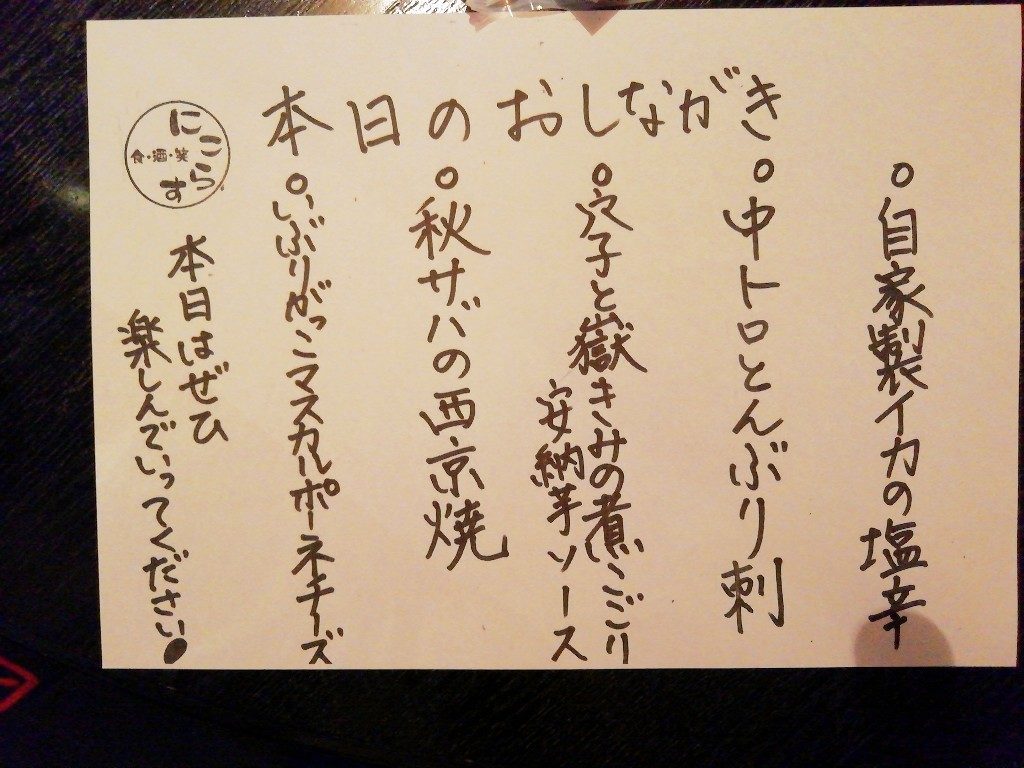 本日のおしながき
○自家製イカの塩辛
○中トロとんぶり刺
○穴子と嶽きみの煮こごり
安納芋ソース
○秋サバの西京焼
○いぶりがっこマスカルポーネチーズ
にこらす
食・酒・笑
本日はぜひ
楽しんでいってください●